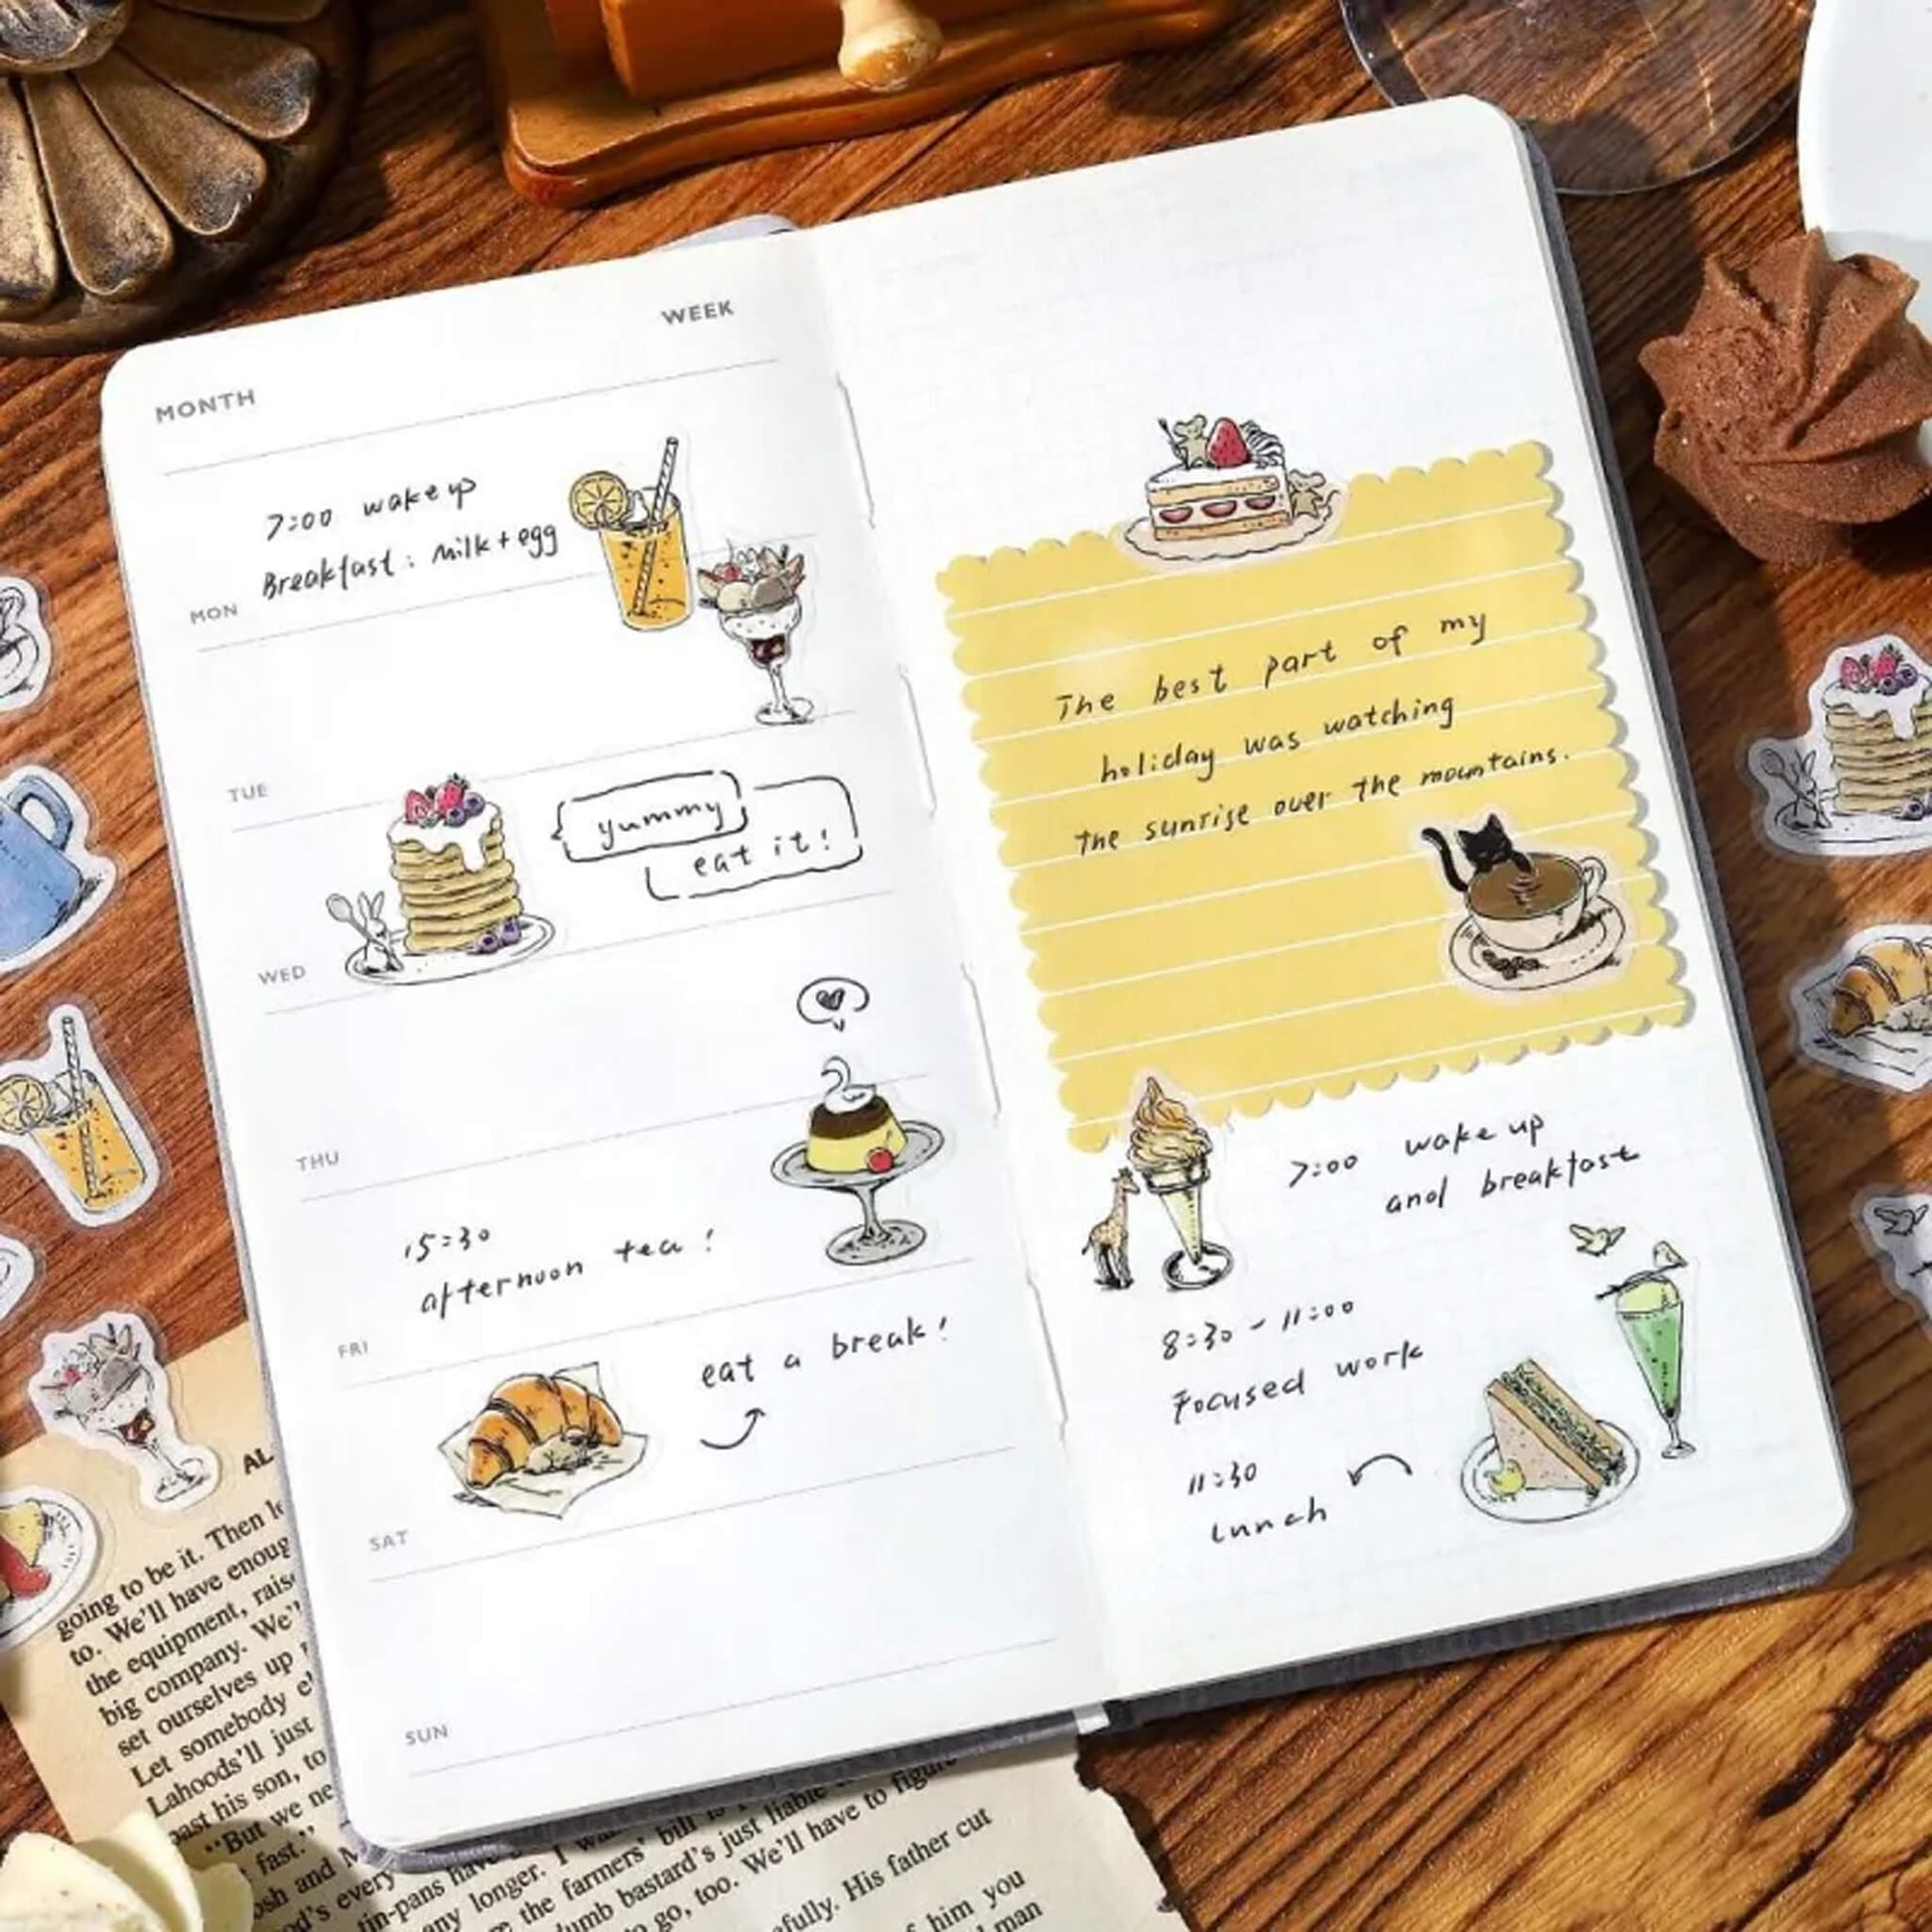 WEEK
MONTH
7:00 wake up
Breakfast: Milk + egg
MON
TUE
yummy
eat it!
WED
THU
15:30
afternoon tea!
FRI
eat a break!
SAT
SUN
The best part of my
holiday was watching
the sunrise over the mountains.
7:00 wake up
and breakfast
8:30 - 11:00
Focused work
11:30
Lunch
AL
going to be it. Then
to. We'll have enoug
the equipment, rais
big company. We'
set ourselves up
Let somebody
Lahoods'll just
past his son, to
"But we ne
fast."
osh and
od's every
tin-pans have
any longer. I
the farmers' bill is
dumb bastard's just liable
go, too. We'll have to figure
fully. His father cut
him you
man